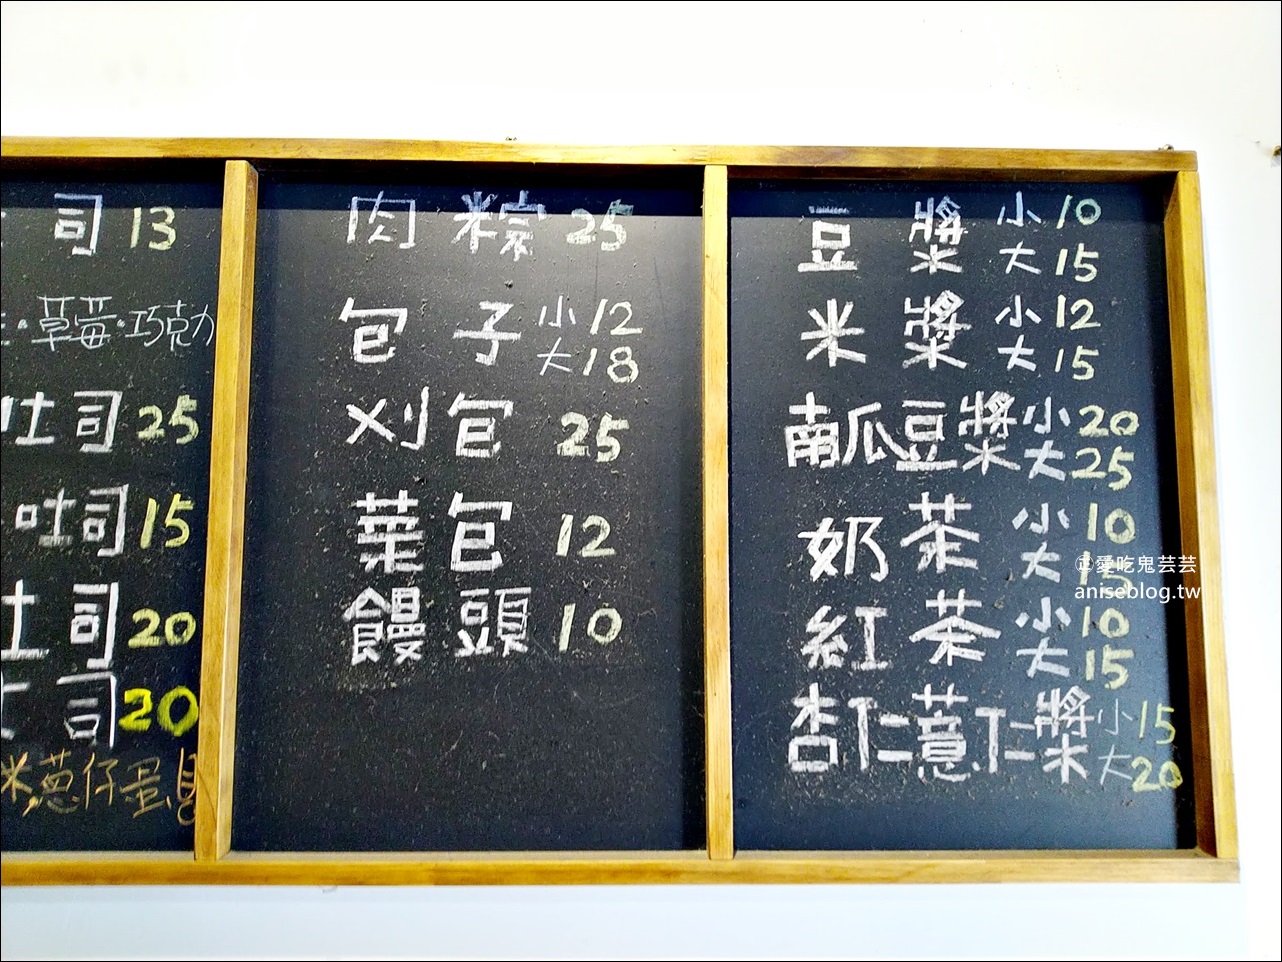 司 13
草莓·巧克力
吐司 25
吐司 15
吐司 20
司 20
米,蔥仔蛋
肉粽 25
包子 小 12
大 18
刈包 25
菜包 12
饅頭 10
豆漿 小 10
大 15
米漿 小 12
大 15
南瓜豆漿 小 20
大 25
奶茶 小 10
大 15
紅茶 小 10
大 15
杏仁薏仁漿 小 15
大 20
愛吃鬼芸芸
aniseblog.tw